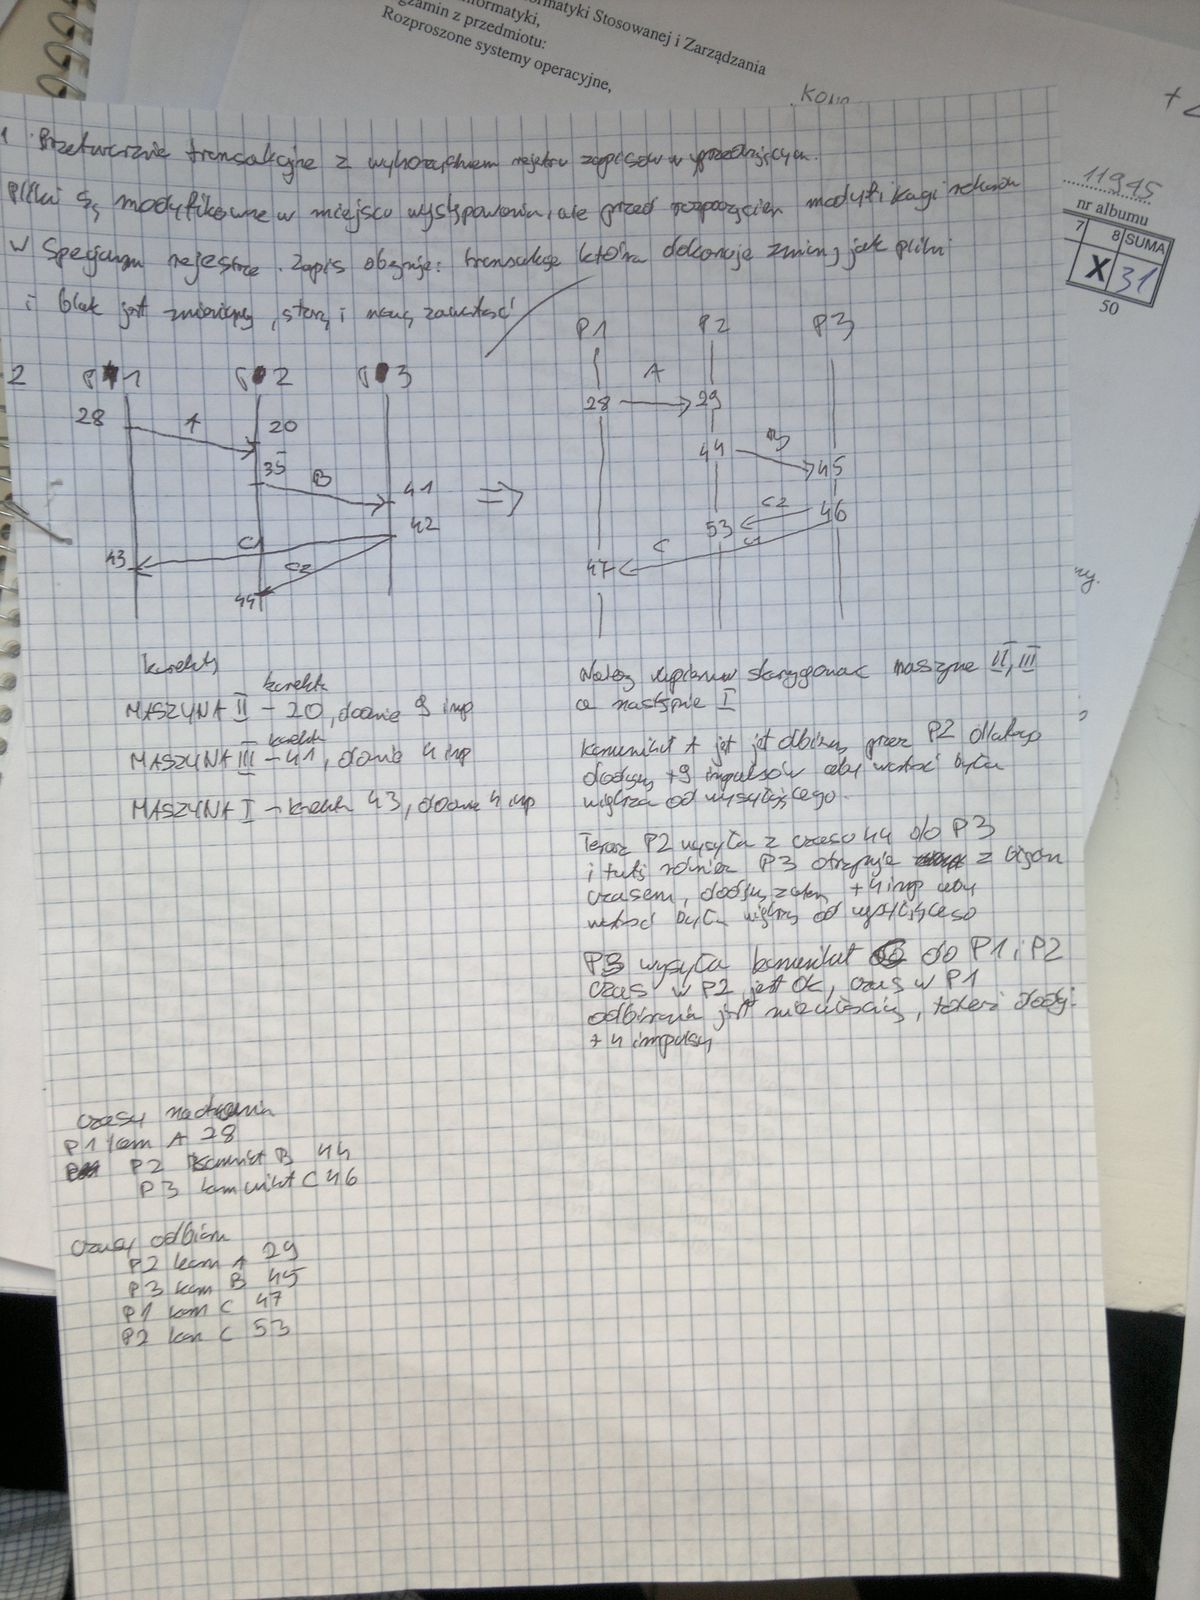 matyki Stosowanej i Zarządzania
nformatyki,
gzamin z przedmiotu:
Rozproszone systemy operacyjne,
11945
nr albumu
7 8 SUMA
X 31
50
1 Przetwarzanie transakcyjne z wykorzystaniem rejestru zapisów wyprzedzających.
Pliki są modyfikowane w miejscu występowania, ale przed rozpoczęciem modyfikacji rekord
w specjalnym rejestrze. Zapis obejmuje: transakcję która dokonuje zmiany, jak plik
i blok jest zmieniany, starą i nową zawartość
P1 P2 P3
A
28 29
B
44 45
C2
53 46
C C1
47
2 P1 P2 P3
28 A 20
35 B 41
42
43 C1
C2
44
=>
korekty
korekta
MASZYNA II – 20, dodanie 9 imp
korekta
MASZYNA III – 41, dodanie 4 imp
MASZYNA I – korekta 43, dodanie 4 imp
Należy najpierw skorygować maszynę II, III
a następnie I
komunikat A jest jest odbierany przez P2 dlatego
dodajemy +9 impulsów aby wartość była
większa od wysyłającego.
Teraz P2 wysyła z czasem 44 do P3
i tutaj również P3 otrzymuje z błędnym
czasem, dodajemy zatem +4 imp aby
wartość była większa od wysyłającego
P3 wysyła komunikat do P1 i P2
czas w P2 jest ok, czas w P1
odbierania jest niewłaściwy, także dodaj.
+4 impulsy
czasy nadawania
P1 kom A 28
P2 komunikat B 44
P3 komunikat C 46
czasy odbioru
P2 kom A 29
P3 kom B 45
P1 kom C 47
P2 kom C 53